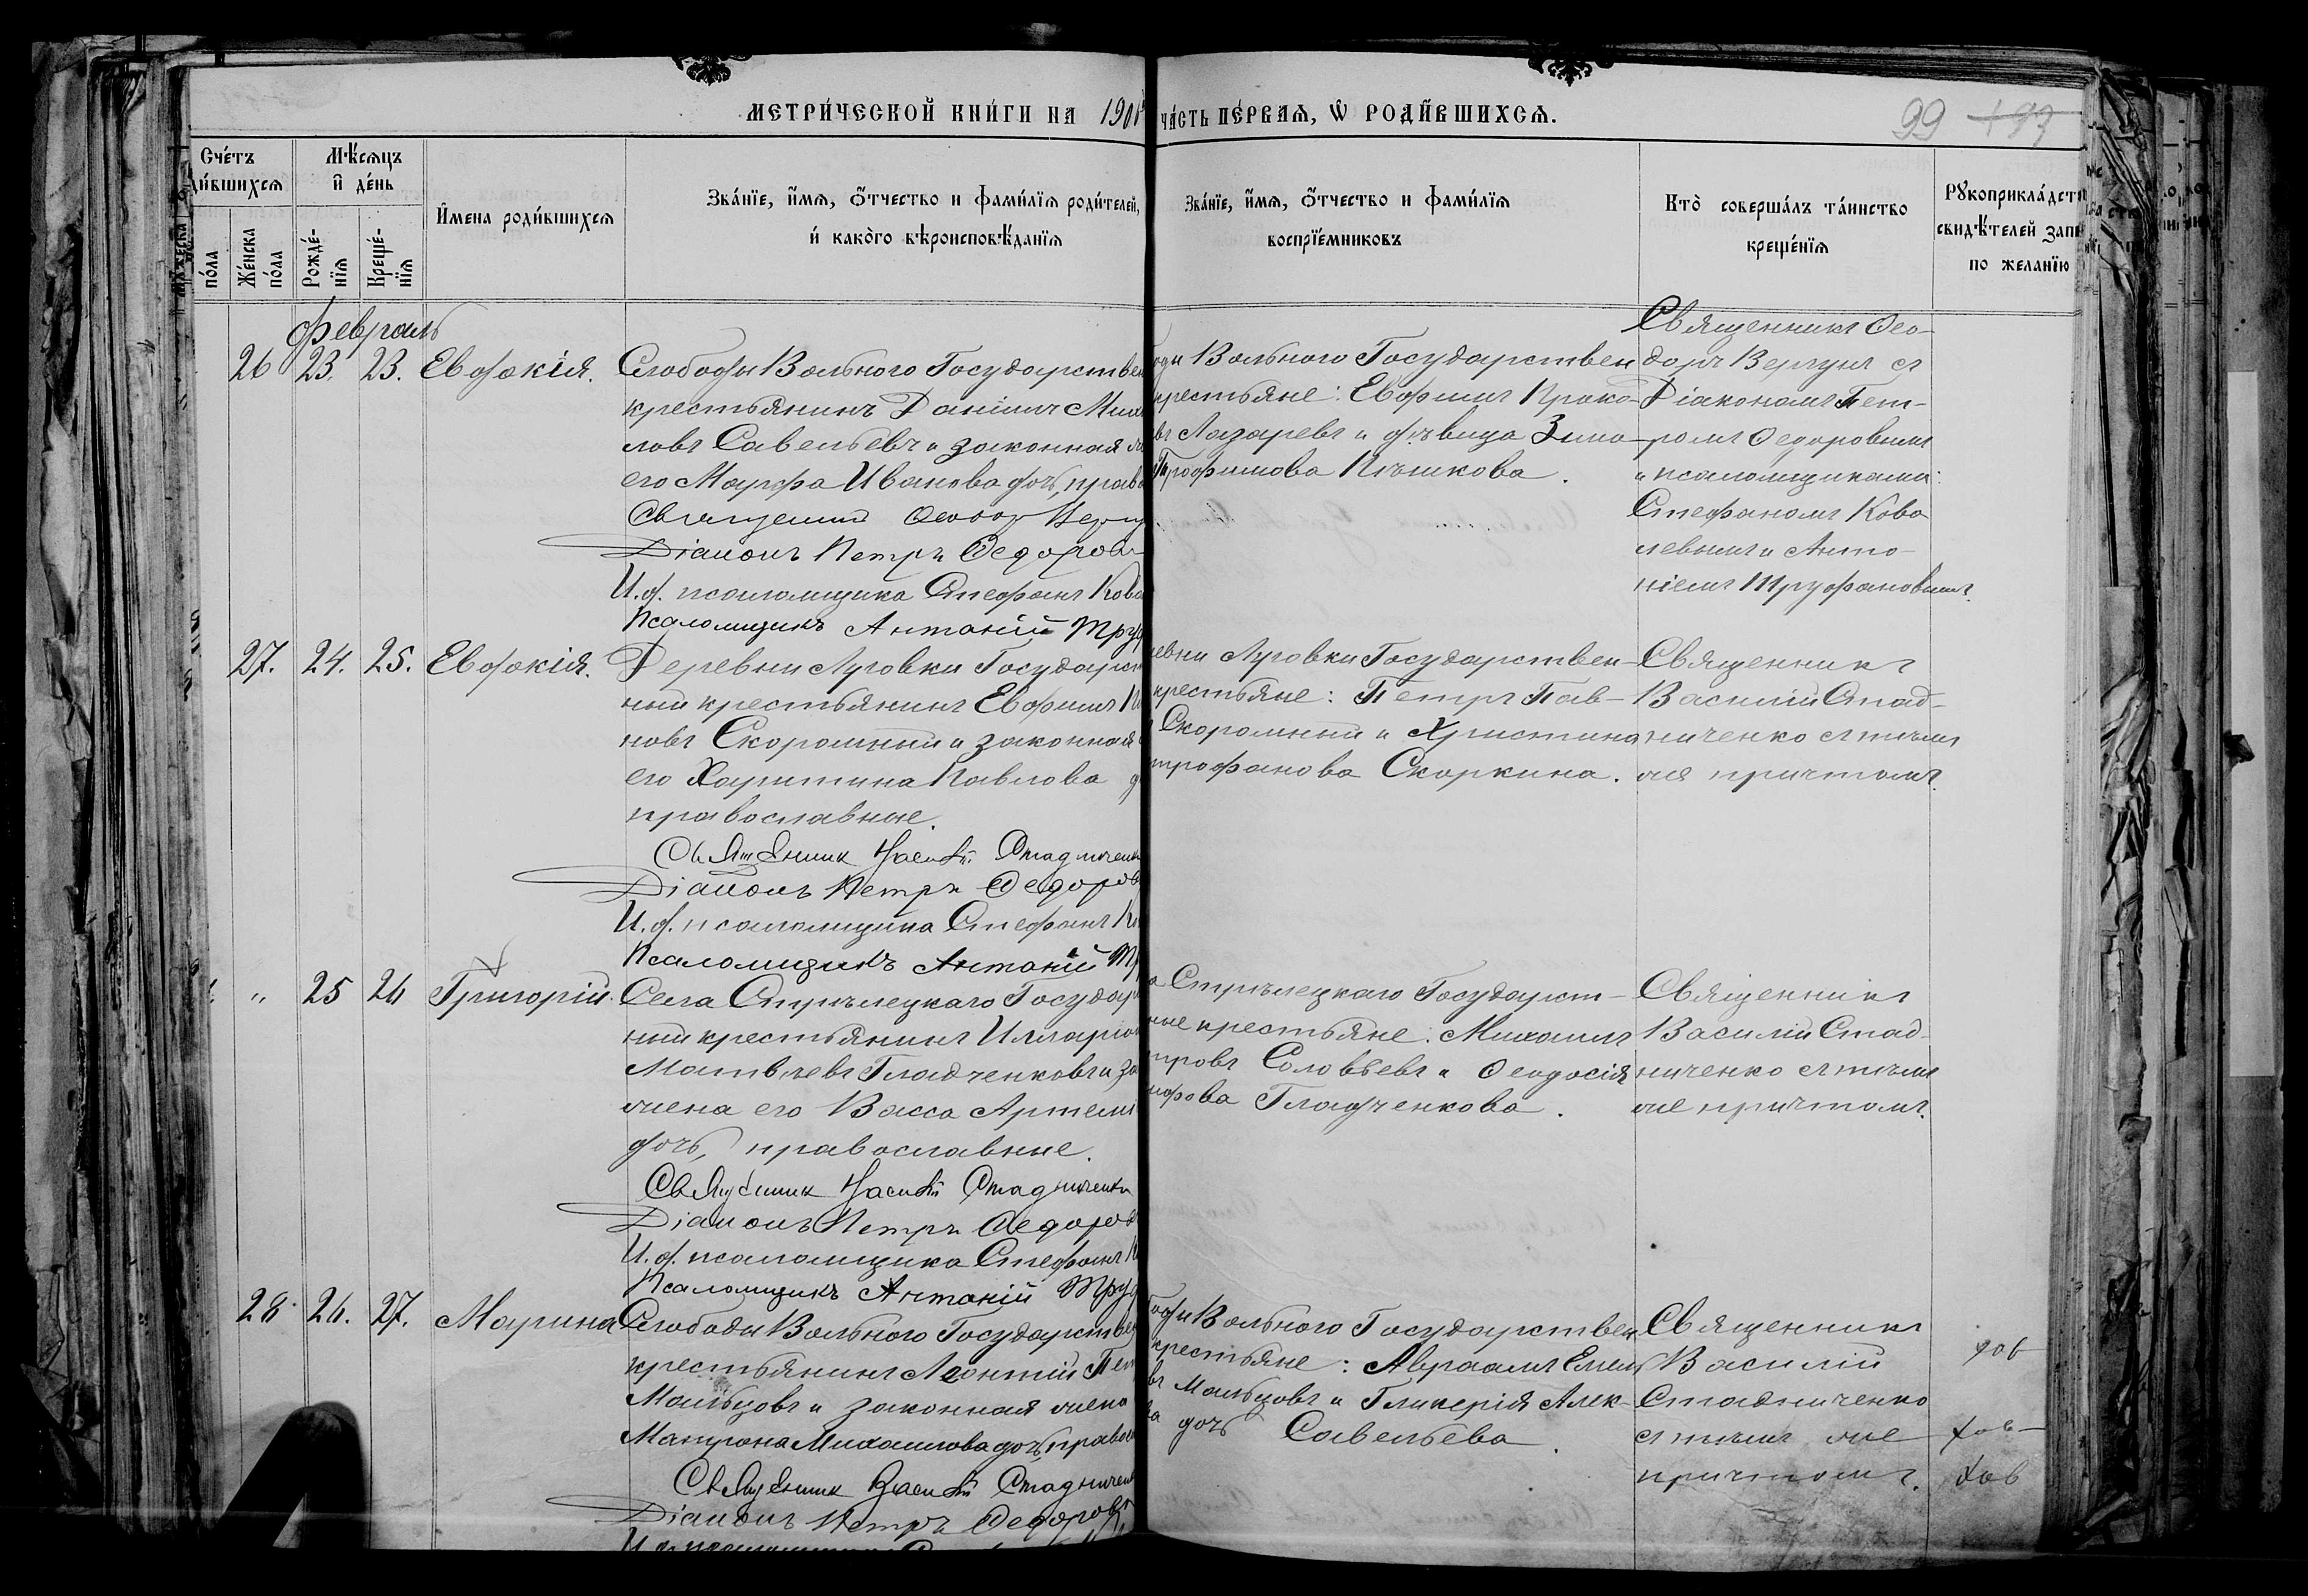 МЕТРИ́ЧЕСКОЙ КНИ́ГИ НА 1901
ЧА́СТЬ ПЕ́РВАѦ, Ѡ҆ РОДИ́ВШИХСѦ.
99 197
Сче́тъ
ди́вшихсѧ
Мѣ́сѧцъ
и҆ де́нь
И҆мена роди́вшихсѧ
Зва́нїе, и҆́мѧ, ѻ҆́тчество и фами́лїѧ роди́телей,
и҆ како́го вѣроисповѣ́данїѧ
Зва́нїе, и҆́мѧ, ѻ҆́тчество и фами́лїѧ
воспрїе́мниковъ
Кто̀ соверша́лъ та́инство
креще́нїѧ
Рꙋкоприкла́дст
свидѣ́телей запи
по жела́нїю
по́ла
Же́нска
по́ла
Рожде́-
нїѧ
Креще́-
нїѧ
Февраль
26 23. 23. Евдокія.
Слободы Вольного Государствен
крестьянинъ Даніилъ Миха
ловъ Савельевъ и законная ж
его Марфа Иванова дочь, право
Священник Ѳеодор Вергу
Діаконъ Петръ Ѳедоров
И.д. псаломщика Стефанъ Кова
Псаломщикъ Антоній Труф
оды Вольного Государствен
крестьяне: Евфимъ Проко-
въ Лазаревъ и дѣвица Зина-
Трофимова Пѣшкова.
Священникъ Ѳео-
доръ Вергунъ съ
Діакономъ Пет-
ромъ Ѳедоровымъ
и псаломщиками:
Стефаномъ Кова
левымъ и Анто-
ніемъ Труфановымъ.
27. 24. 25. Евдокія.
Деревни Луговки Государст
ный крестьянинъ Евфимъ
новъ Скоромный и законная
его Харитина Павлова д
православные.
Священник Василій Стадниченк
Діаконъ Петръ Ѳедоров
И.д. псаломщика Стефанъ К
Псаломщикъ Антоній Тр
евни Луговки Государствен-
крестьяне: Петръ Пав-
Скоромный и Христина
трофанова Скоркина.
Священникъ
Василій Стад-
ниченко съ тѣмъ
же причтомъ.
" 25 26 Григорій.
Села Стрѣлецкаго Государ
ный крестьянинъ Илларіо
Матвѣевъ Гладченковъ и за
жена его Васса Артеми
дочь, православные.
Священник Василій Стадниченко
Діаконъ Петръ Ѳедоров
И.д. псаломщика Стефанъ К
Псаломщикъ Антоній Труф
а Стрѣлецкаго Государст-
ные крестьяне: Михаилъ
тровъ Соловьевъ и Ѳеодосія
Гладченкова.
Священникъ
Василій Стад-
ниченко съ тѣмъ
же причтомъ.
28 26. 27. Марина
Слободы Вольного Государствен
крестьянинъ Леонтій Пет
Мальцовъ и законная жена
Матрона Михаилова дочь, правос
Священник Василій Стадниченк
Діаконъ Петръ Ѳедоровъ
боды Вольного Государствен
крестьяне: Авраамъ Емел
въ Мальцовъ и Гликерія Алек-
ва дочь Савельева.
Священникъ
Василій
Стадниченко
съ тѣмъ же
причтомъ.